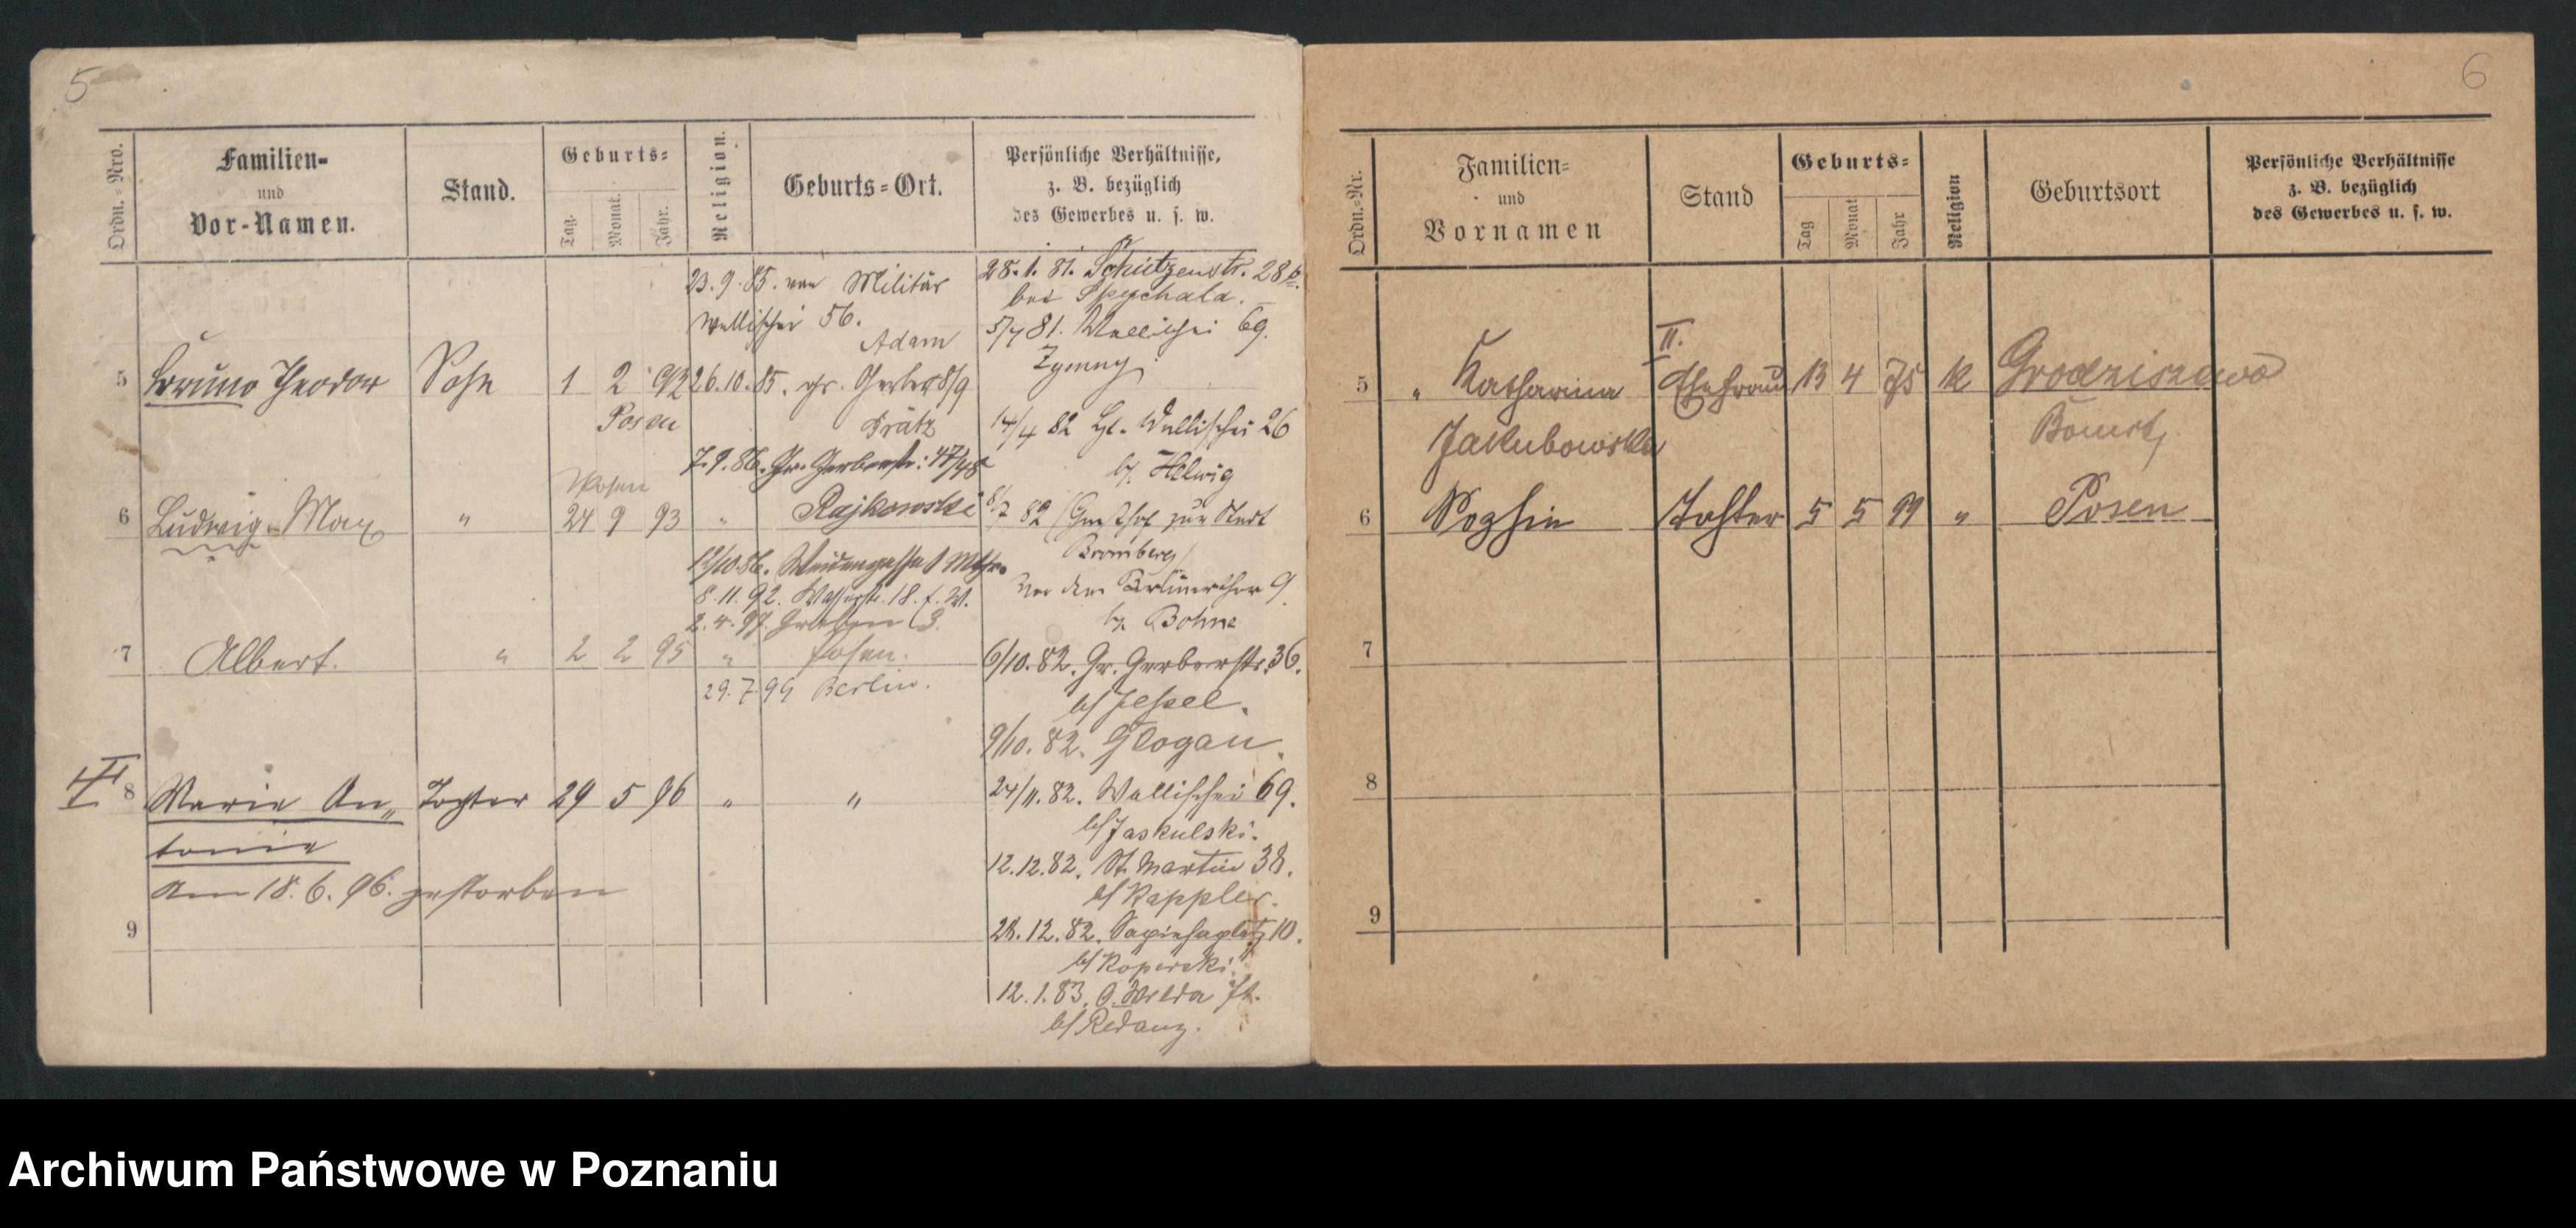 5
Ordn.=Nro.
Familien-
und
Vor-Namen.
Stand.
Geburts=
Tag.
Monat.
Jahr.
Religion.
Geburts=Ort.
Persönliche Verhältnisse,
z. B. bezüglich
des Gewerbes u. s. w.
23.9.85. von Militär
Wallischei 56.
Adam
5 Bruno Theodor Sohn 1 2 92
Posen
26.10.85. gr. Gerber 8/9
Krätz
7.9.86. Gr. Gerberstr: 47/48
Rajkowski
Posen
6 Ludwig Max " 24 9 93 "
12/10.86. Weidengasse 1
8.11.92. Wasserstr. 18.
2.4.97.
7 Albert. " 2 2 95 " Posen.
29.7.99 Berlin.
II
8 Maria An„ Tochter 29 5 96 " "
tonie
Am 18.6.96. gestorben
9
28.1.81. Schützenstr. 28b.
bei Spychala.
5/7 81. Wallischei 69.
Zymny
14/4 82 Wallischei 26
b/ Helwig
8/7 82 (Gasthof zur Stadt
Bromberg)
Vor dem Berlinerthor 9
b/ Bohne
6/10.82. Gr. Gerberstr. 36.
b/ Jessel.
9/10.82. Glogau.
24/11.82. Wallischei 69.
b/ Jaskulski.
12.12.82. St. Martin 38.
b/ Kappler.
28.12.82. Sapiehaplatz 10.
b/ Koperski.
12.1.83. O. Wilda
b/ Redanz.
6
Ordn.=Nr.
Familien=
und
Vornamen
Stand
Geburts=
Tag
Monat
Jahr
Religion
Geburtsort
Persönliche Verhältnisse
z. B. bezüglich
des Gewerbes u. s. w.
II.
5 " Katharina Ehefrau 13 4 75 k Grodziszewo
Jakubowska Bomst
6 Sophie Tochter 5 5 99 " Posen
7
8
9
Archiwum Państwowe w Poznaniu